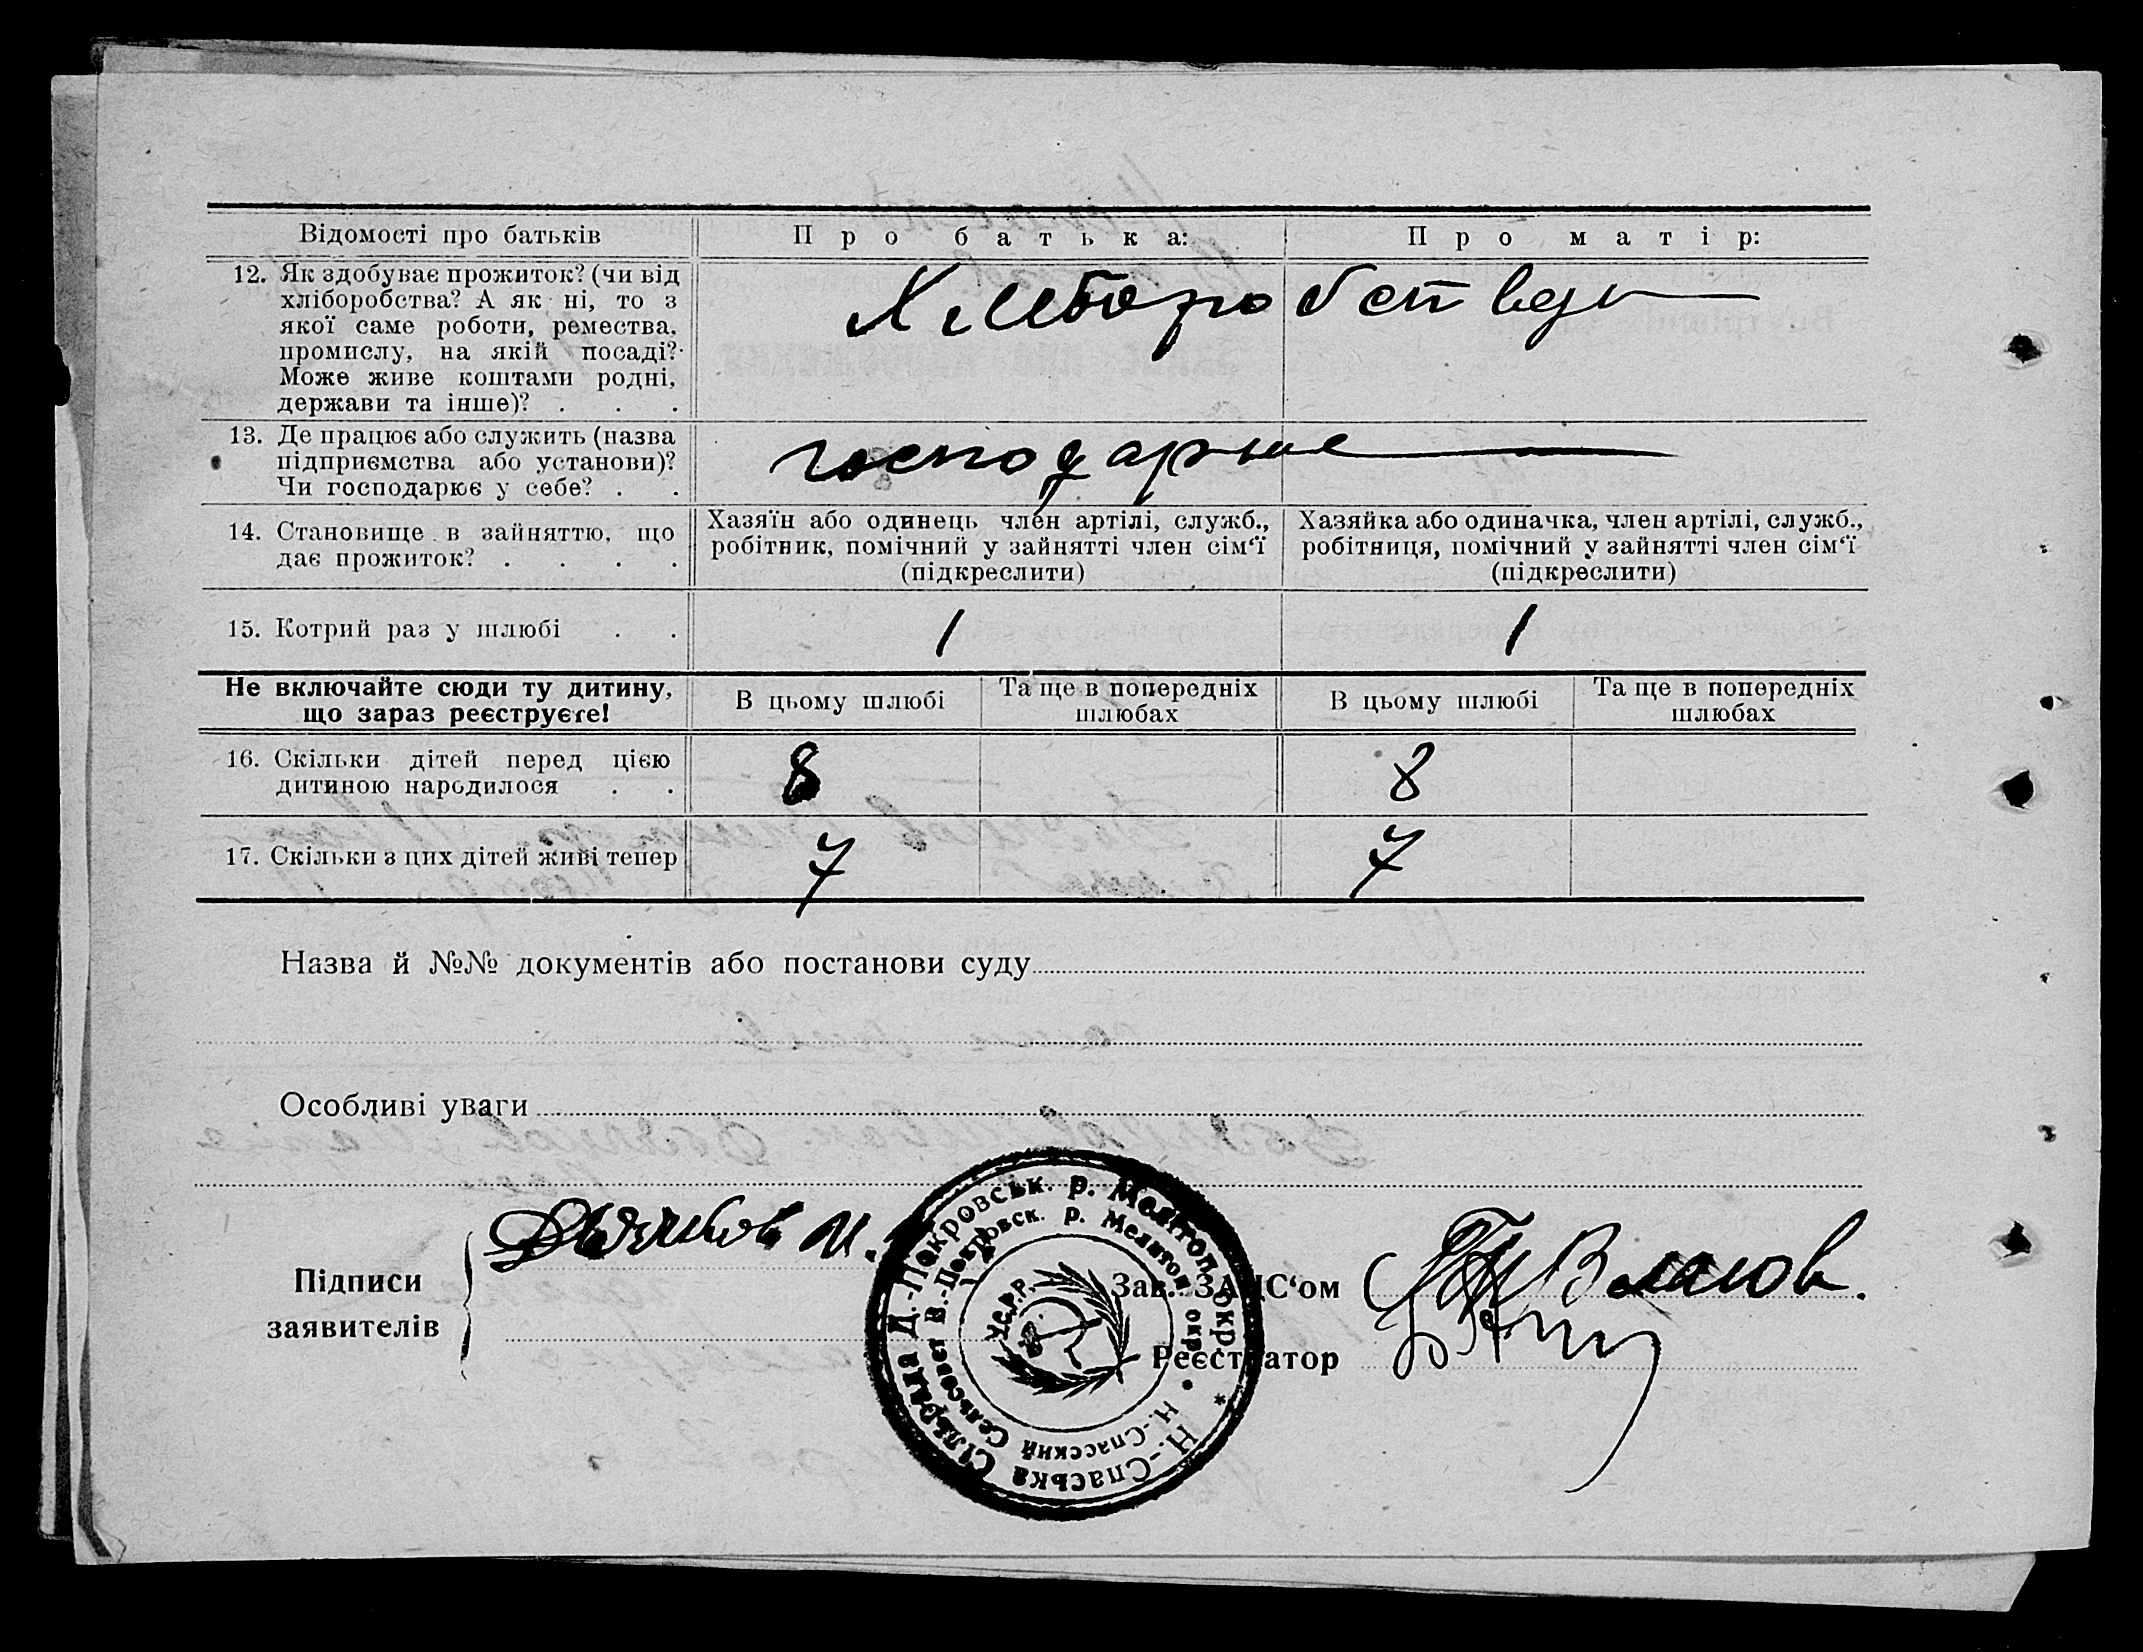 Відомості про батьків Про батька: Про матір:
12. Як здобуває прожиток? (чи від
хліборобства? А як ні, то з
якої саме роботи, ремества,
промислу, на якій посаді?
Може живе коштами родні,
держави та інше)? . . .
13. Де працює або служить (назва
підприємства або установи)?
Чи господарює у себе? . .
14. Становище в зайняттю, що
дає прожиток? . . . .
Хазяїн або одинець член артілі, служб.,
робітник, помічний у зайнятті член сім‘ї
(підкреслити)
Хазяйка або одиначка, член артілі, служб.,
робітниця, помічний у зайнятті член сім‘ї
(підкреслити)
15. Котрий раз у шлюбі . . 1 1
Не включайте сюди ту дитину,
що зараз реєструєте!
В цьому шлюбі
Та ще в попередніх
шлюбах
В цьому шлюбі
Та ще в попередніх
шлюбах
16. Скільки дітей перед цією
дитиною народилося . . 8 8
17. Скільки з цих дітей живі тепер 7 7
Назва й №№ документів або постанови суду
Особливі уваги
Підписи
заявителів
Дьячков И.
Н.-Спаська Сільрада Д.-Покровськ. р. Мелітоп. окр. *
Н.-Спасский Сельсовет В.-Покровск. р. Мелитоп. окр. •
У.С.Р.Р.
Зав. ЗАГС‘ом Власов.
Реєстратор